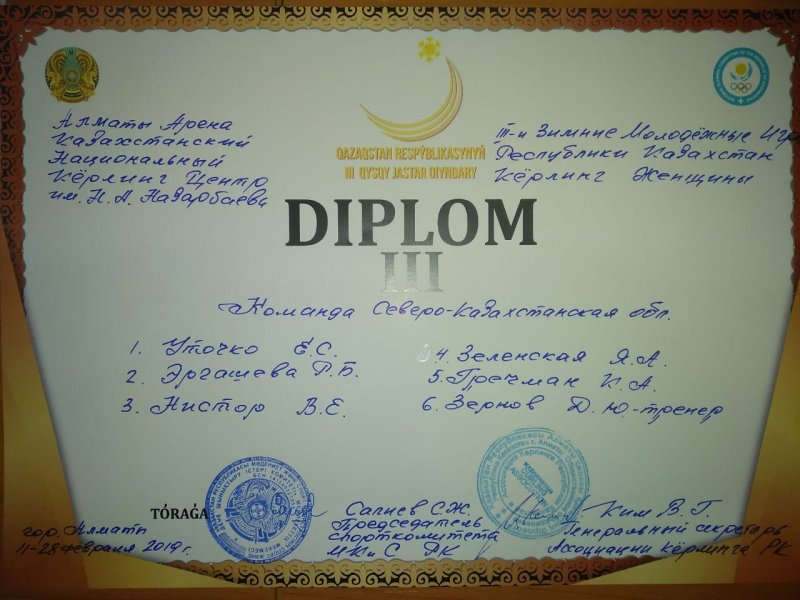 Алматы Арена
Казахстанский
Национальный
Кёрлинг Центр
им. Н.А. Назарбаева
QAZAQSTAN RESPÝBLIKASYNYŃ
III QYSQY JASTAR OIYNDARY
III-и Зимние Молодёжные Игры
Республики Казахстан
Кёрлинг Женщины
DIPLOM
III
Команда Северо-Казахстанская обл.
1. Уточко Е.С.
2. Эргашева Р.Б.
3. Нистор В.Е.
4. Зеленская Я.А.
5. Гречман К.А.
6. Зернов Д.Ю.-тренер
TÓRAĞA
Салиев С.Ж.
Председатель
спорткомитета
МКиС РК
Ким В.Г.
Генеральный секретарь
Ассоциации кёрлинга РК
гор. Алматы
11-28 февраля 2019 г.